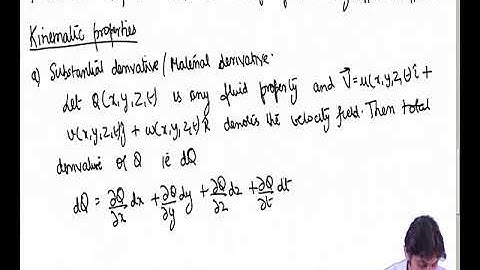 Kinematic properties
a) Substantial derivative / Material derivative.
Let Q(x,y,z,t) is any fluid property and V⃗=u(x,y,z,t)î +
v(x,y,z,t)ĵ + w(x,y,z,t)k̂ denotes the velocity field. Then total
derivative of Q ie dQ
dQ = ∂Q/∂x dx + ∂Q/∂y dy + ∂Q/∂z dz + ∂Q/∂t dt